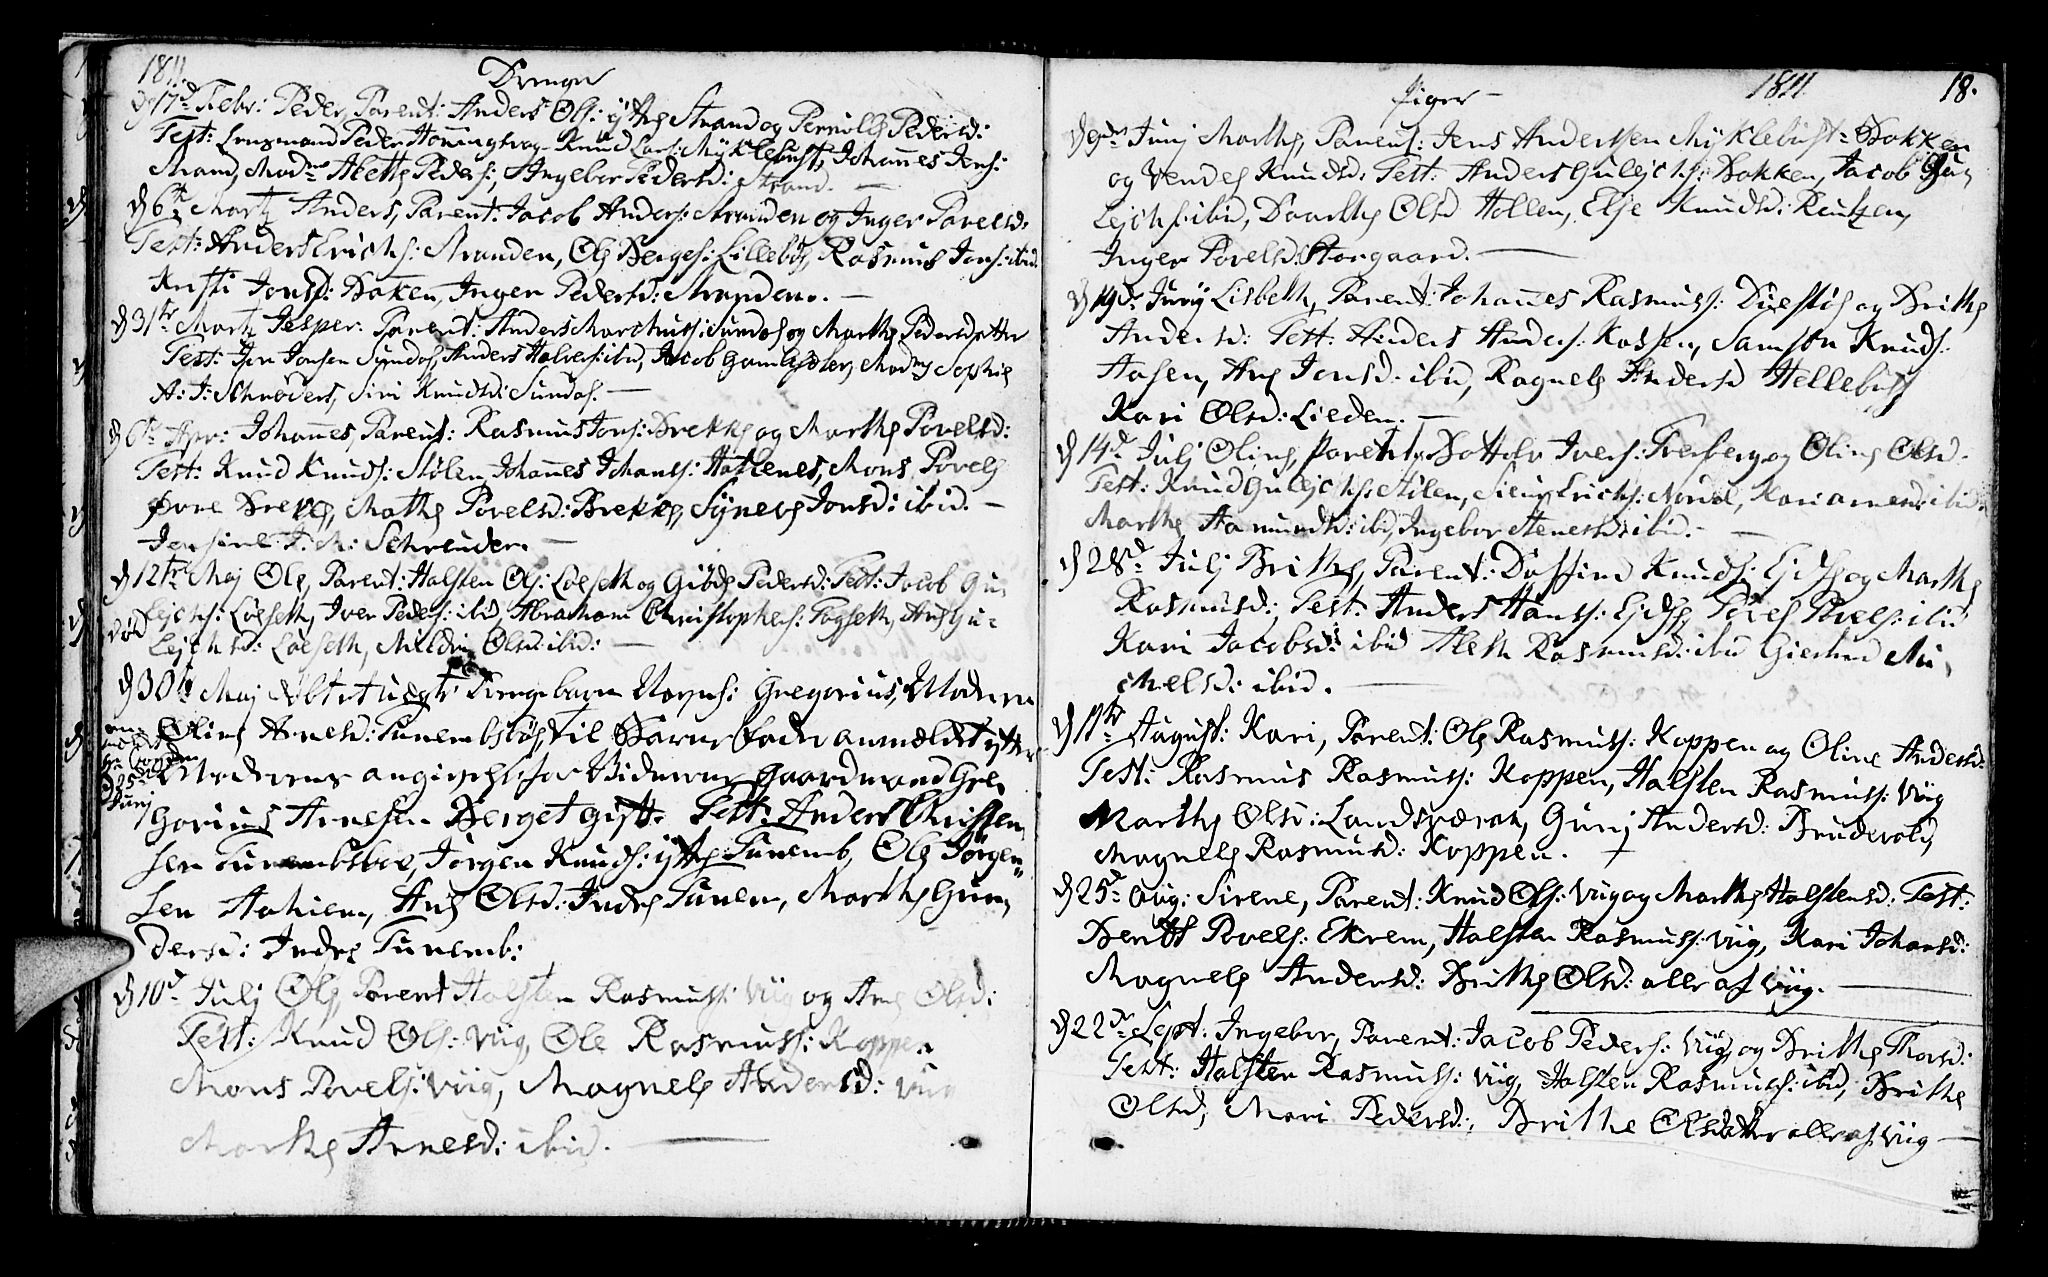 1811. Drenge
d 17d Febr: Peder, Parent: Anders Ols: yttre Strand og Pernille Pedersd:
Test: Peder Honningsvog, Knud Lars: Mÿklebust, Johannes Jens:
Strand, Mad: Alethe Peders:, Ingebor Pedersd: Strand. —
d 6te Martz Anders, Parent: Jacob Anders: Stranden og Inger Povelsd:
Test: Anders Erichs: Stranden, Ole Berges: Lillebøe, Rasmus Jons: ibid.
Kristi Jonsd: Bakken, Inger Pedersd: Stranden. —
d 31te Martz Jesper: Parent: Anders Marthinuss: Sundos og Marthe Pedersdatter
Test: Jon Jonsen Sundos, Anders Halvers: ibid, Jacob Gamlesøter, Mad: Sophie
A: J: Schrøders, Siri Knudsd: Sundos. —
d 6te Apr: Johannes, Parent: Rasmus Jons: Brekke og Marthe Povelsd:
Test: Knud Knuds: Støle, Johannes Johans: Hatlenes, Mons Povels
Øvre Brekke, Mathe Povelsd: Brekke, Syneve Jonsd: ibid. —
Jensine J. M: Schreuder. —
d 12te Maj Ole, Parent: Halsten Ols: Løeseth og Giøde Pedersd: Test: Jacob Gu-
lichs: Løeseth, Iver Peders: ibid, Abraham Christophers: Fogseth, Ane Gu-
død lichsd: Løeseth, Mildri Olsd: ibid: —
d 30te Maj Drengebarn Gregorius, Moderen
Oline Arnesd: Tunembsbøe, til Barne Fader anmældt efter
Moderens angivelse Gaardmand Gre-
gorius Arnesen Berget gift. Test: Anders Christen-
sen Tunembsbøe, Jørgen Knuds: ÿttre Tunemb, Ole Jørgen-
sen Aahiem, Ane Olsd: Indre Tunem, Marthe Gun-
dersd: Indre Tunemb:
d 10d Julj Ole Parent Halsten Rasmuss: Viig og Ane Olsd:
Test: Knud Ols: Viig, Ole Rasmuss: Koppen
Mons Povels: Viig, Magnele Andersd: Viig
Marthe Arnesd: ibid. —
Piger — 1811 18.
d 9de Junj Marthe, Parent: Jens Andersen Mÿklebust Bakken
og Vendel Knudsd. Test: Anders Gulichs: Bakken, Jacob Gu-
lichs: ibid, Daarthe Olsd Hollen, Elje Knudsd:
Inger Povelsd: Storgaard. —
d 19de Junij Lisbeth, Parent: Johannes Rasmuss: Duestøl og Brithe
Andersd: Test: Anders Anders: Kassen, Samson Knuds:
Aasen, Ane Jonsd: ibid, Ragnele Andersd Hellebust
Kari Olsd: Lieden. —
d 14d Julj Oline, Parent: Bottolv Ivers: Freberg og Oline Olsd.
Test: Knud Gulichs: Stølen, Sievig Erichs: Nordal, Kari ibid.
Marthe Aamundsd: ibid, Ingebor Stenersd: ibid. —
d 28d Julj Brithe, Parent: Dolfind Knuds: Eidse og Marthe
Rasmusd: Test: Anders Hanss: Eidse, Povel Povels: ibid
Kari Jacobsd: ibid Aleth Rasmusd: ibid Giertrud Mi-
chelsd: ibid. —
d 11te August: Kari, Parent: Ole Rasmuss: Koppen og Oline Andersd:
Test: Rasmus Rasmuss: Koppen, Halsten Rasmuss: Viig
Marthe Olsd: Landsværck, Gurij Andersd: Brudevold,
Magnele Rasmusd: Koppen.
d 25d Aug: Sirene, Parent: Knud Ols: Viig og Marthe Halstensd: Test:
Berthe Povels: Ekrem, Halsten Rasmuss: Viig, Kari Johansd:
Magnele Andersd: Brithe Olsd: alle af Viig. —
d 22de Sept: Ingebor, Parent: Jacob Peders: Viig og Brithe Thorsd:
Test: Halsten Rasmuss: Viig, Halsten Rasmuss: ibid, Brithe
Olsd, Mari Pedersd: Brithe Olsdatter alle af Viig —